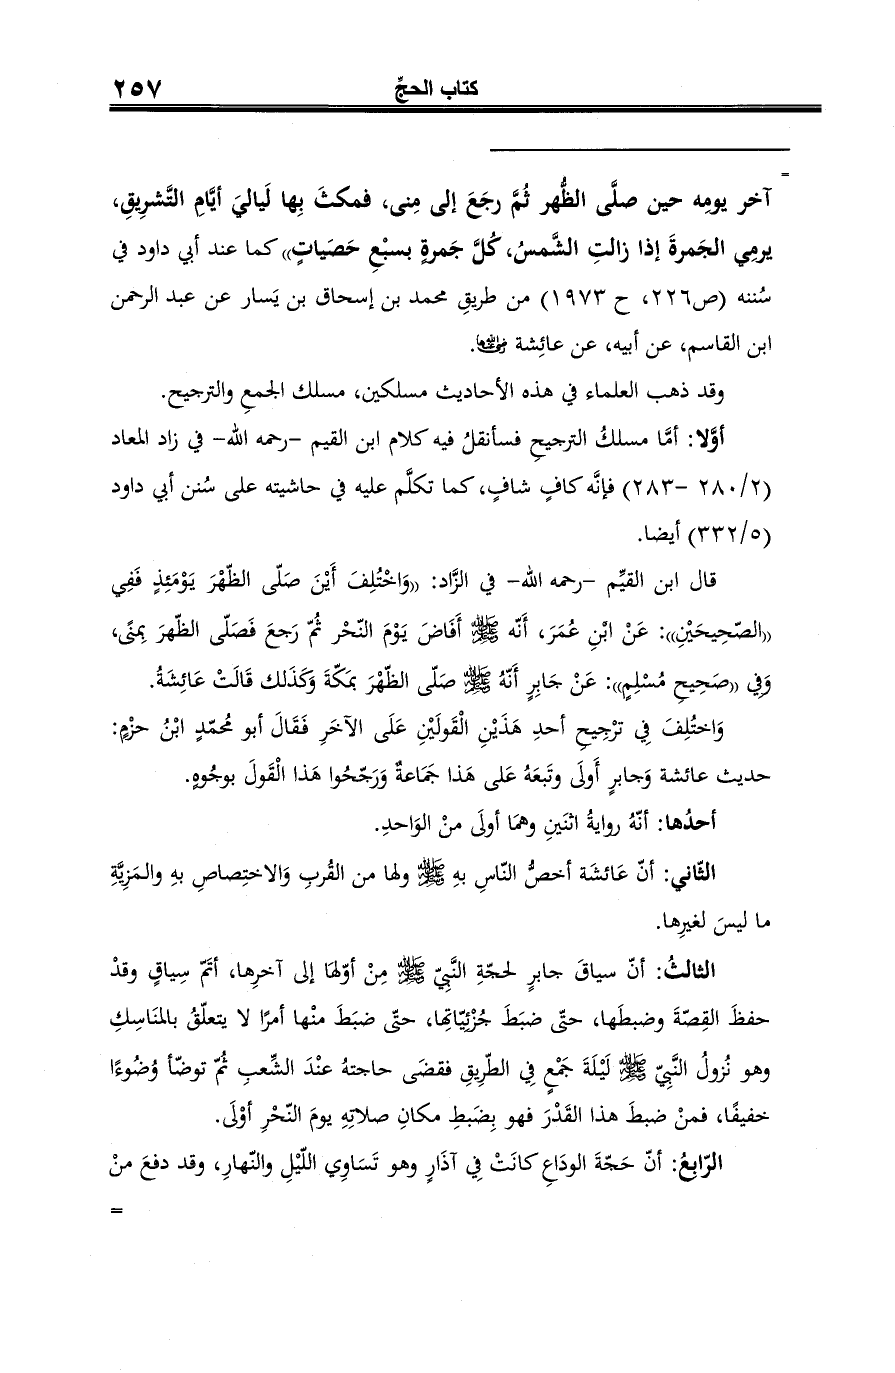 كتاب الحجِّ ٢٥٧
=
آخر يومِه حين صلَّى الظُّهر ثُمَّ رجَعَ إلى مِنى، فمكثَ بِها لَياليَ أيَّامِ التَّشريقِ،
يرمِي الجَمرةَ إذا زالتِ الشَّمسُ، كُلَّ جَمرةٍ بسبْعِ حَصَياتٍ» كما عند أبي داود في
سُننه (ص٢٢٦، ح ١٩٧٣) من طريقِ محمد بن إسحاق بن يَسار عن عبد الرحمن
ابن القاسم، عن أبيه، عن عائِشة رضي الله عنها.
وقد ذهب العلماء في هذه الأحاديث مسلكين، مسلك الجمعِ والترجيح.
أوَّلا: أمَّا مسلكُ الترجيحِ فسأنقلُ فيه كلام ابن القيم -رحمه الله- في زاد المعاد
(٢/ ٢٨٠ -٢٨٣) فإنَّه كافٍ شافٍ، كما تكلَّم عليه في حاشيته على سُنن أبي داود
(٥/ ٣٣٢) أيضا.
قال ابن القيِّم -رحمه الله- في الزَّاد: «وَاخْتُلِفَ أَيْنَ صَلّى الظّهْرَ يَوْمَئِذٍ فَفِي
«الصّحِيحَيْنِ»: عَنْ ابْنِ عُمَرَ، أَنّه ﷺ أَفَاضَ يَوْمَ النّحْر ثُمّ رَجعَ فَصَلّى الظهرَ بِمنًى،
وَفِي «صَحِيحِ مُسْلِمٍ»: عَنْ جَابِرٍ أَنّهُ ﷺ صَلّى الظّهْرَ بمَكّةَ وَكَذَلك قَالَتْ عَائِشَةُ.
وَاختُلِفَ فِي تَرْجِيحِ أحدِ هَذَيْنِ الْقَولَيْنِ عَلَى الآخَرِ فَقَالَ أبو مُحمّدٍ ابْنُ حزْمٍ:
حديث عائشة وَجابرٍ أَولَى وتَبعَهُ عَلى هَذا جَماعةٌ وَرَجّحُوا هَذا الْقَولَ بوجُوهٍ.
أحدُها: أنّهُ روايةُ اثنَينِ وهمَا أولَى منْ الوَاحدِ.
الثّاني: أنّ عَائشَة أخصُّ النّاسِ بهِ ﷺ ولها من القُربِ وَالاختِصاصِ بهِ والمَزِيَّةِ
ما ليسَ لغيرِها.
الثالثُ: أنّ سياقَ جابرٍ لحجّةِ النَّبيّ ﷺ مِنْ أوّلها إلى آخرِها، أتَمّ سِياقٍ وقدْ
حفظَ القِصّةَ وضبطَها، حتّى ضبَطَ جُزْئِيّاتِها، حتّى ضبَطَ منْها أمرًا لا يتعلّقُ بالمَنَاسِكِ
وهو نُزولُ النَّبيّ ﷺ لَيْلَةَ جَمْعٍ فِي الطّرِيقِ فقضَى حاجتهُ عنْدَ الشِّعبِ ثُمّ توضّأ وُضُوءًا
خفيفًا، فمنْ ضبطَ هذا القَدْرَ فهو بِضَبطِ مكانِ صلاتِهِ يومَ النّحْرِ أوْلَى.
الرّابِعُ: أنّ حَجّةَ الودَاعِ كانَتْ فِي آذَارٍ وهو تَسَاوِي اللّيْلِ والنّهارِ، وقد دفعَ منْ
=